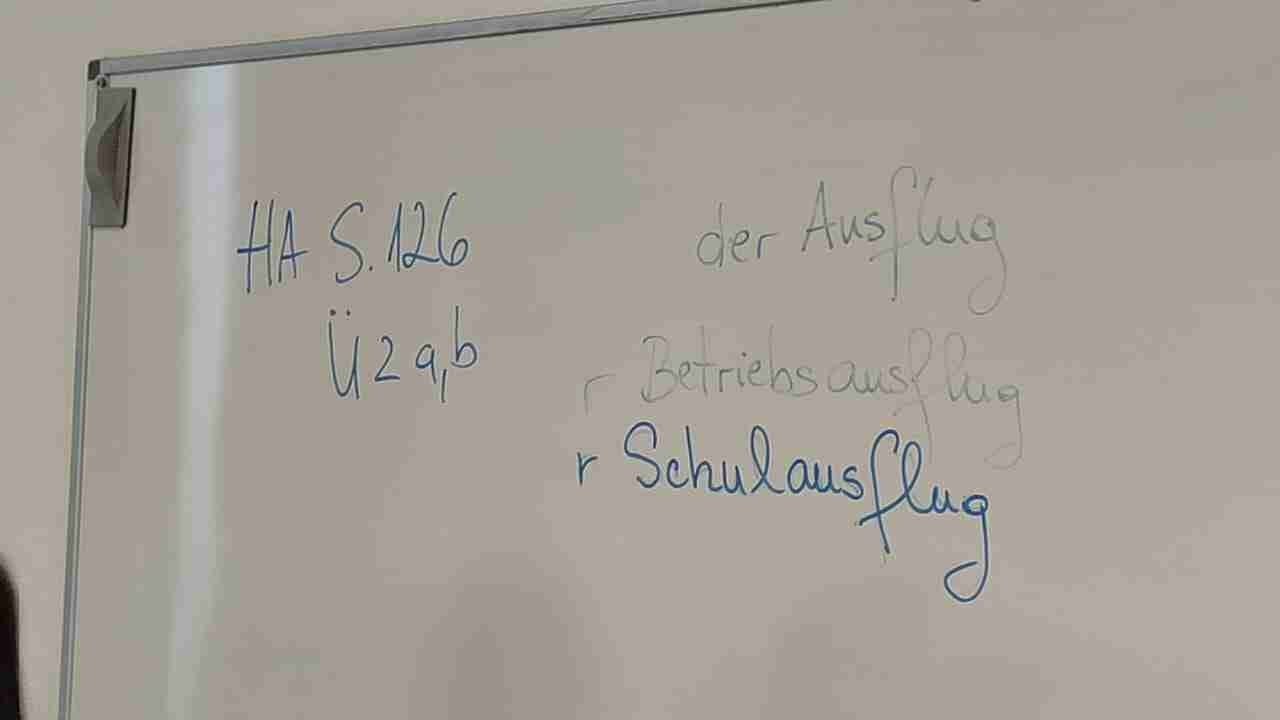 HA S. 126
Ü 2 a, b
der Ausflug
r Betriebsausflug
r Schulausflug